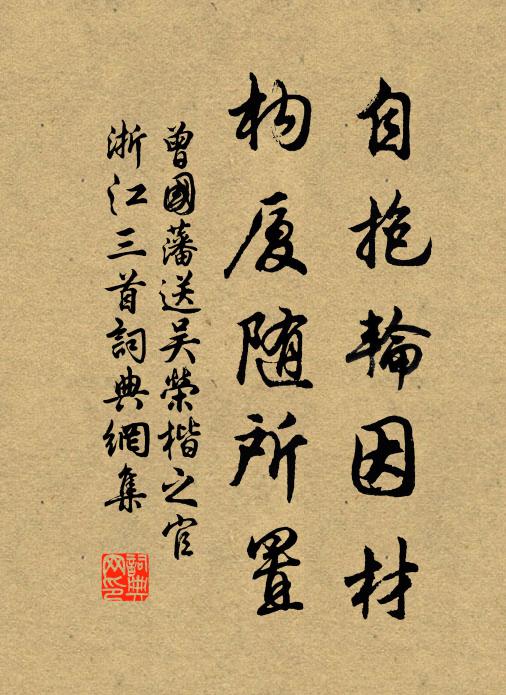 自抱輪囷材
构厦随所置
曾國藩送吴榮楷之官
浙江三首詞典網集
詞典
网印